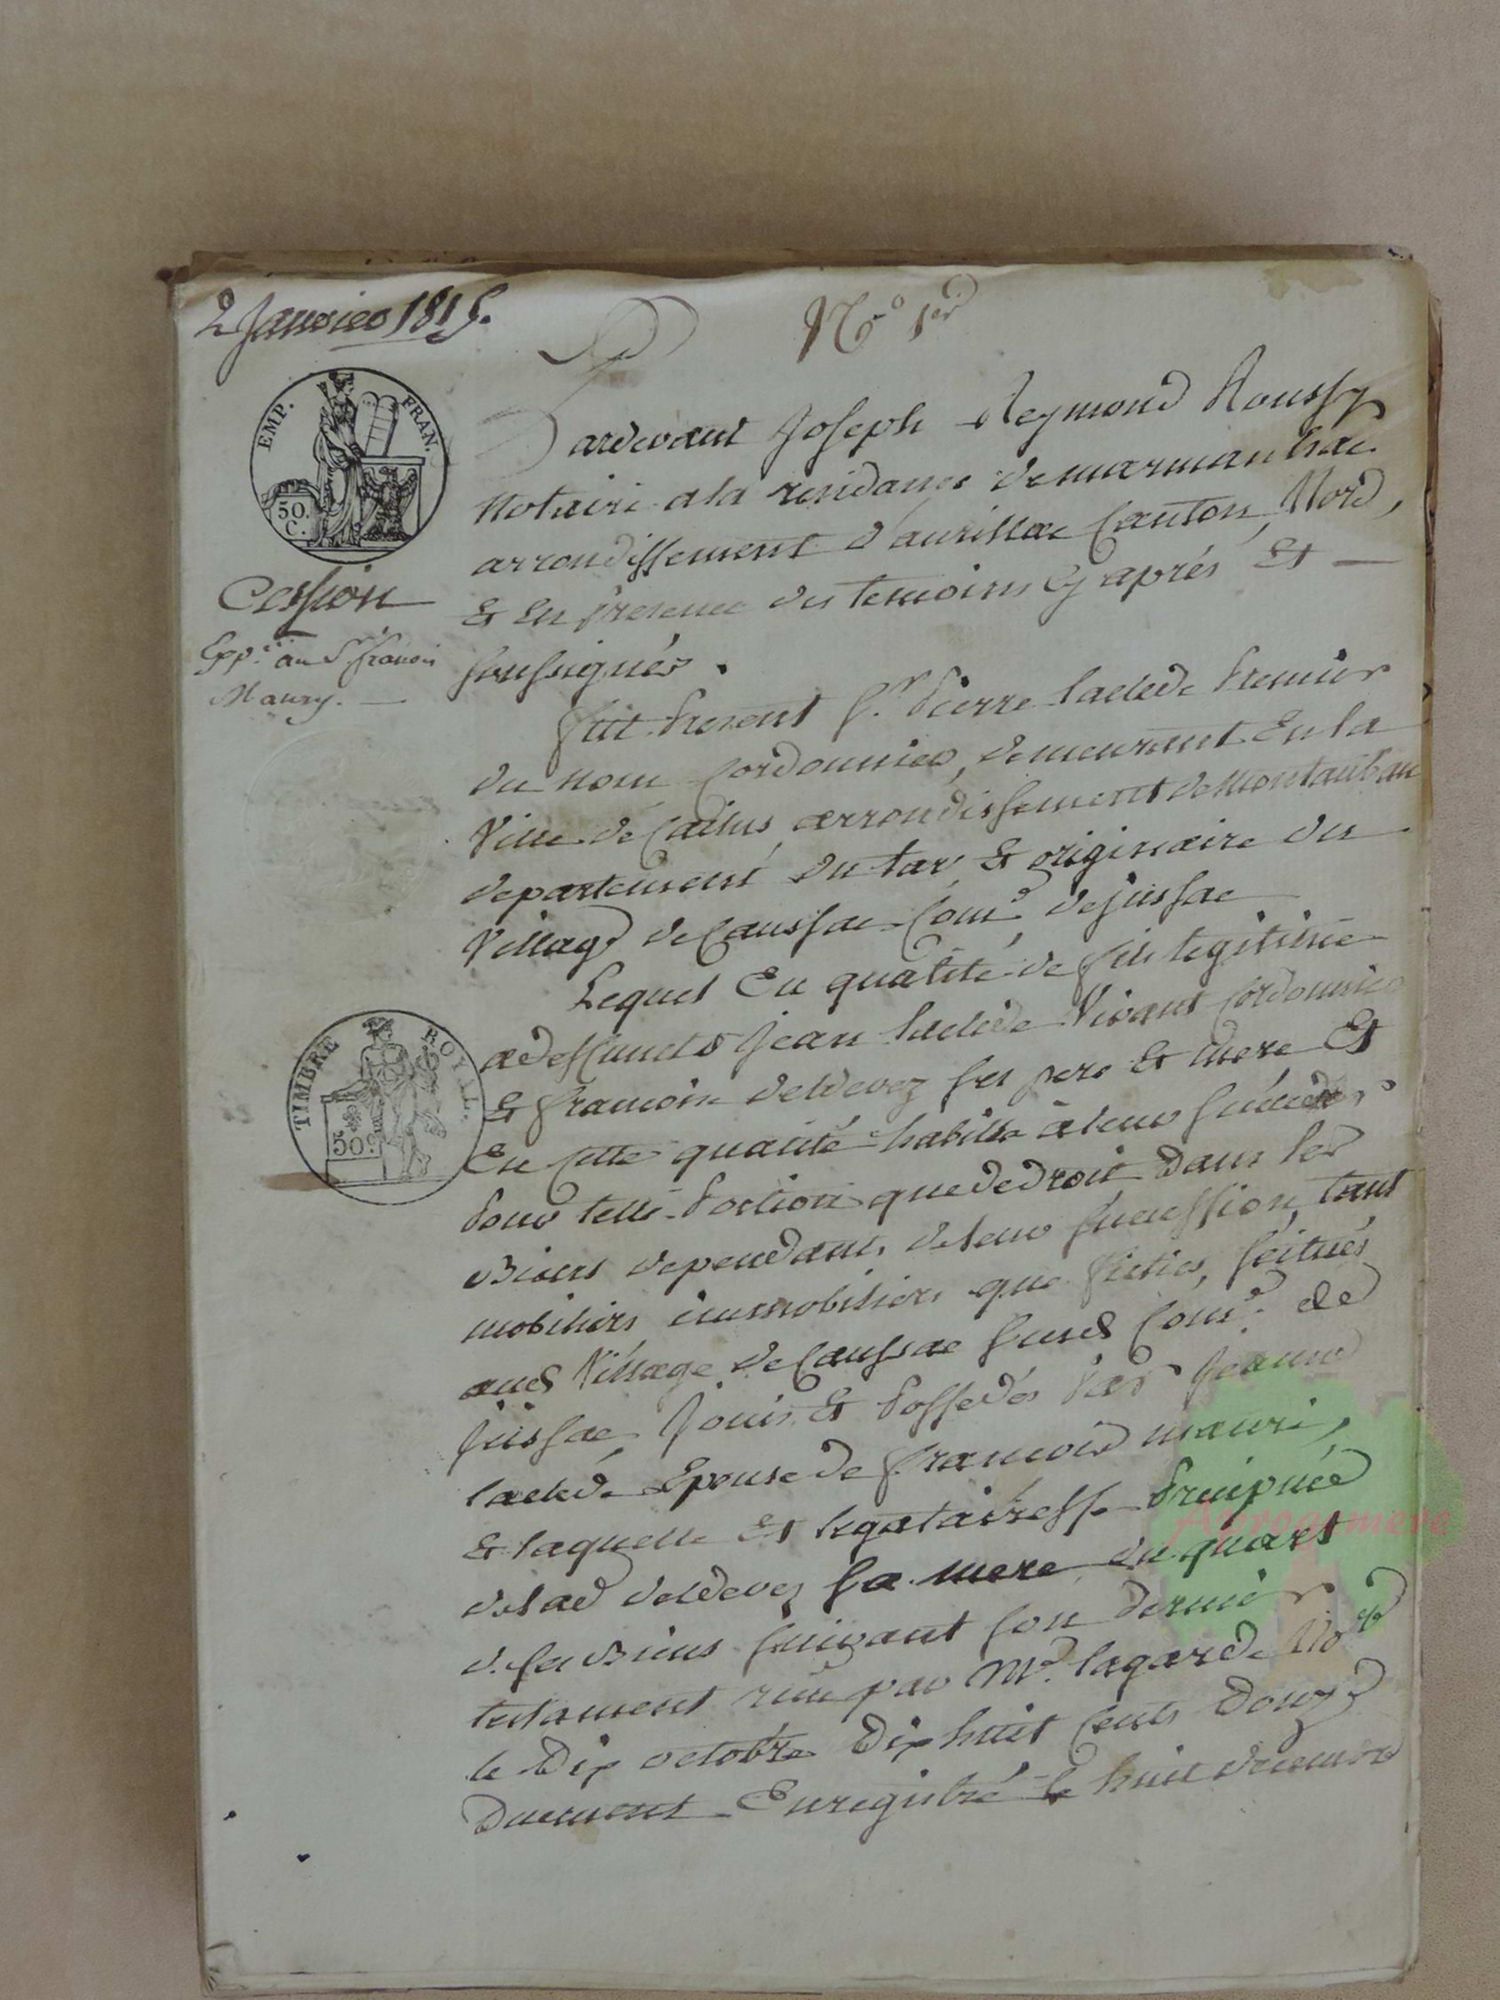 2 Janvier 1815.
N.º 1er
EMP. FRAN.
50. C.
Cession
Exp.on au Sr francois
Maury.
Pardevant Joseph Reymond Roussy
Notaire a la residance de marmanhac
arrondissement d'aurillac Canton, Nord,
& En presence des temoins Cy aprés Et
soussignés.
fut Present Sr. Pierre laclede Premier
du nom Cordonnier, demeurant En la
Ville de Cailus, arrondissement de montauban
departement du tar, & originaire du
Village de Caussac Come. de jussac
Lequel En qualité de fils legitime
a deffuncts Jean laclède Vivant Cordonnier
& francoise deldevez ses pere & mere Et
En Cette qualité habille à leur succeder,
Pour telle Portion que de droit dans les
Biens dependants de leur succession, tant
mobiliers immobiliers que fictics, scitués
aud Village de Caussac susd Come. de
Jussac, Jouis & Possedés Par Jeanne
laclède Epouse de francois mauri,
& laquelle Est legatairesse Precipuée
de lad deldevez sa mere du quart
de ses Biens suivant son dernier
testament recu par Me. lagarde Nore
le Dix octobre Dix huit Cents Douze
Duement Enregistré le huit
TIMBRE ROYAL.
50.
Auprogemere